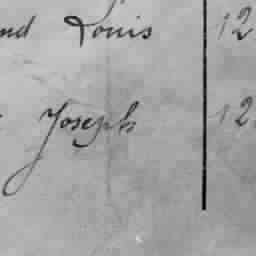 nd Louis 12
Joseph 12